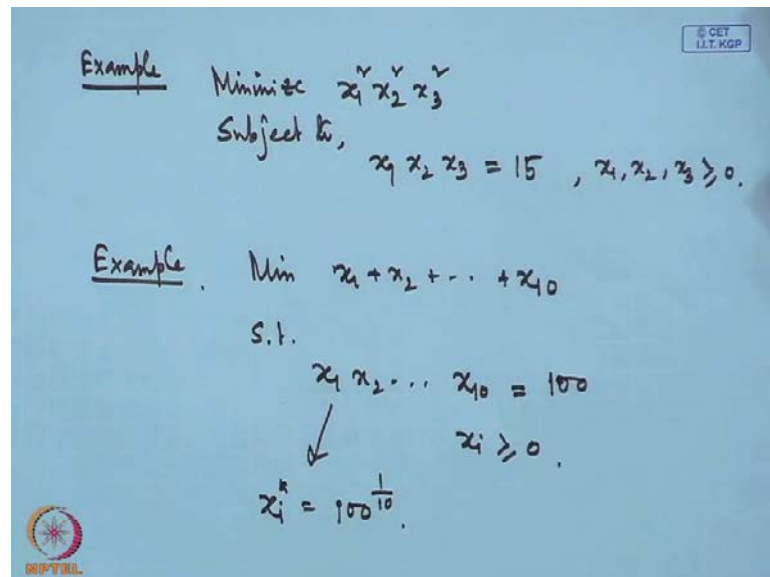 © CET
I.I.T. KGP
Example Minimize x₁² x₂² x₃²
Subject to,
x₁ x₂ x₃ = 15 , x₁, x₂, x₃ ≥ 0.
Example. Min x₁ + x₂ + ... + x₁₀
S.t.
x₁ x₂ ... x₁₀ = 100
xᵢ ≥ 0.
xᵢ* = 100^(1/10).
NPTEL